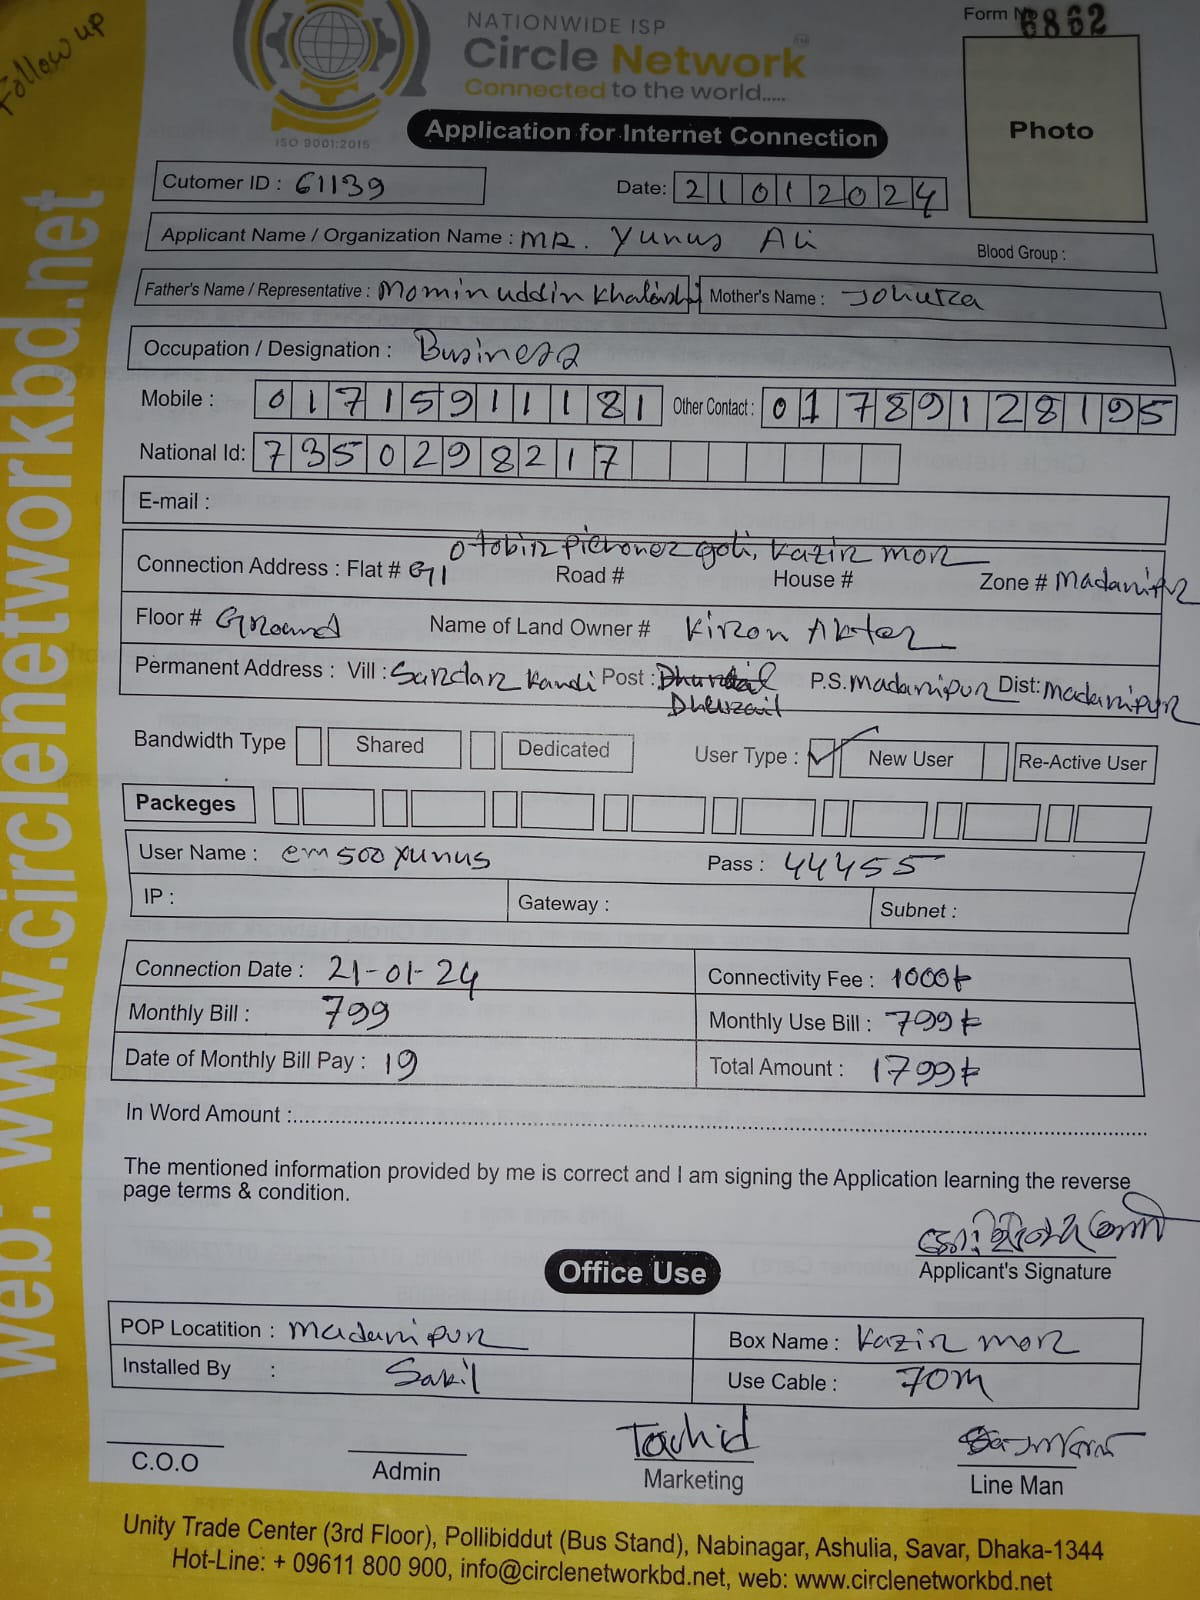 Follow up
NATIONWIDE ISP
Circle Network
Connected to the world.....
ISO 9001:2015
Form No 6862
Photo
Application for Internet Connection
Cutomer ID : 61139
Date: 21012024
Applicant Name / Organization Name : MR. Yunus Ali Blood Group :
Father's Name / Representative : Momin uddin Mother's Name : Johura
Occupation / Designation : Business
Mobile : 01715911181 Other Contact : 01789128195
National Id: 7350298217
E-mail :
otobir pichoner goli, Kazir mor
Connection Address : Flat # G1 Road # House # Zone # Madaripur
Floor # Ground Name of Land Owner # Kiron Akter
Permanent Address : Vill : Sardar Kandi Post : P.S. Madaripur Dist: Madaripur
Dhurail
Bandwidth Type Shared Dedicated User Type : ✓ New User Re-Active User
Packeges
User Name : em500yunus Pass : 44455
IP : Gateway : Subnet :
Connection Date : 21-01-24 Connectivity Fee : 1000৳
Monthly Bill : 799 Monthly Use Bill : 799৳
Date of Monthly Bill Pay : 19 Total Amount : 1799৳
In Word Amount :
The mentioned information provided by me is correct and I am signing the Application learning the reverse
page terms & condition.
Applicant's Signature
Office Use
POP Locatition : Madaripur Box Name : Kazir mor
Installed By : Sakil Use Cable : 70m
Towhid
C.O.O Admin Marketing Line Man
Unity Trade Center (3rd Floor), Pollibiddut (Bus Stand), Nabinagar, Ashulia, Savar, Dhaka-1344
Hot-Line: + 09611 800 900, info@circlenetworkbd.net, web: www.circlenetworkbd.net
web: www.circlenetworkbd.net